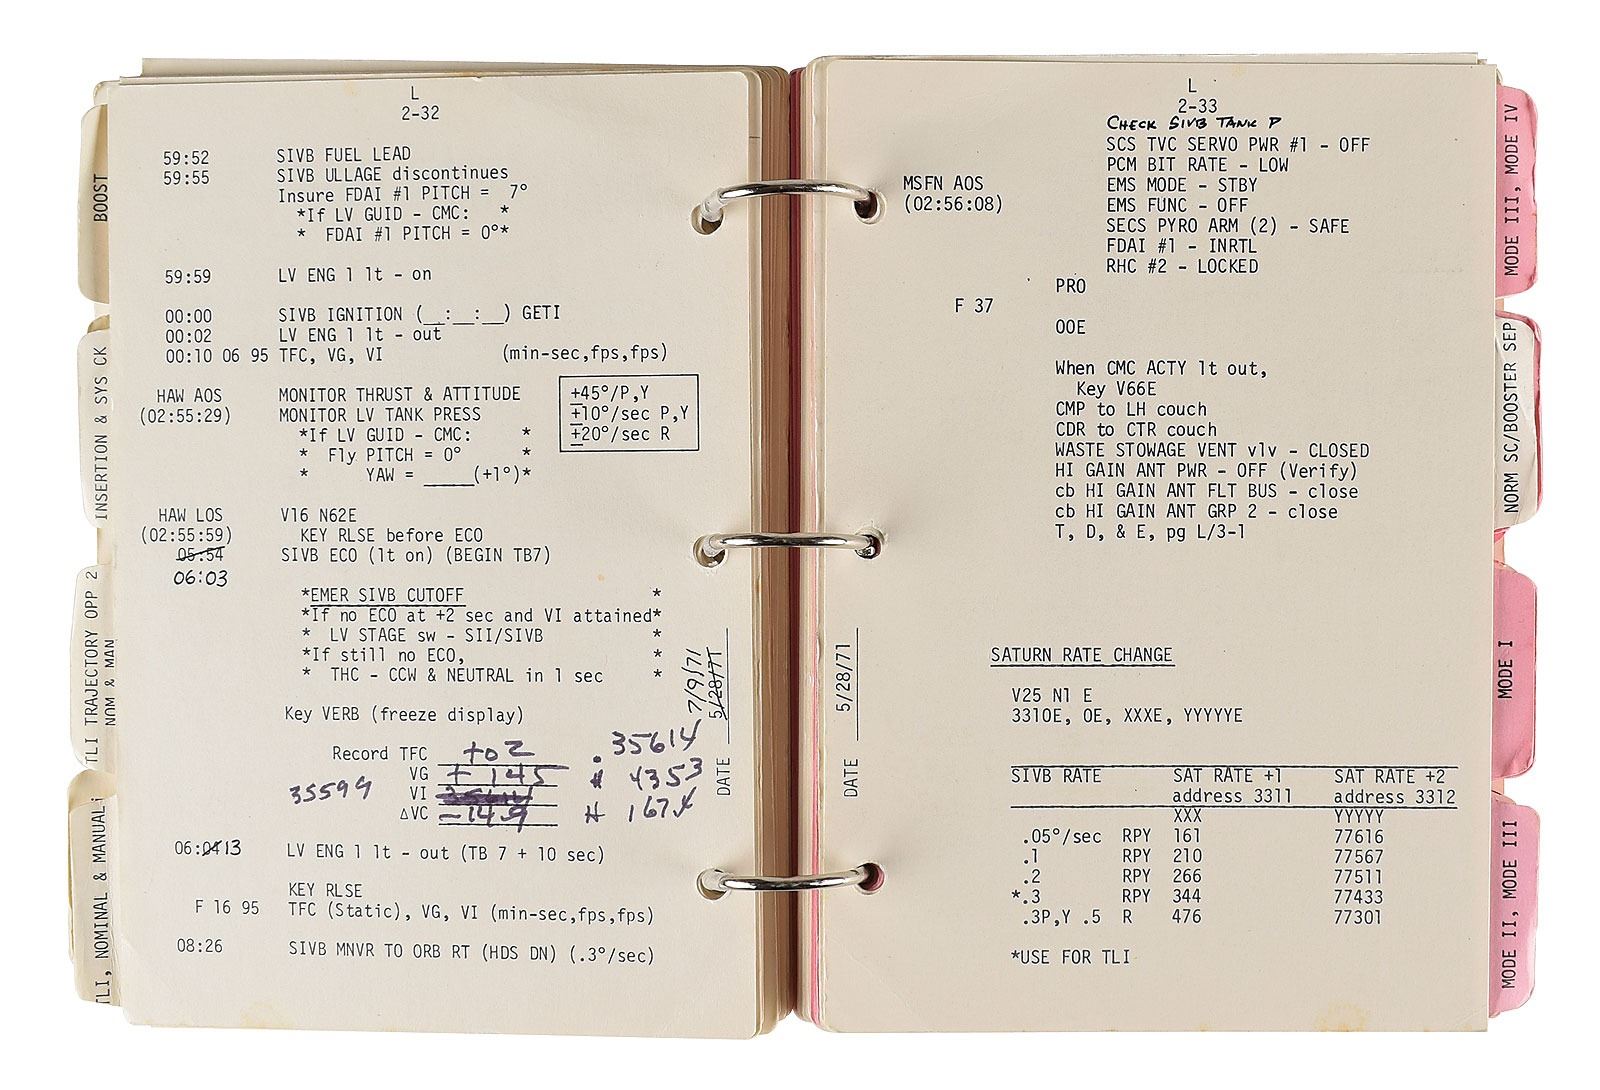 L
2-32
59:52 SIVB FUEL LEAD
59:55 SIVB ULLAGE discontinues
Insure FDAI #1 PITCH = 7°
*If LV GUID - CMC: *
* FDAI #1 PITCH = 0°*
59:59 LV ENG 1 lt - on
00:00 SIVB IGNITION (__:__:__) GETI
00:02 LV ENG 1 lt - out
00:10 06 95 TFC, VG, VI (min-sec,fps,fps)
HAW AOS MONITOR THRUST & ATTITUDE
(02:55:29) MONITOR LV TANK PRESS
±45°/P,Y
±10°/sec P,Y
±20°/sec R
*If LV GUID - CMC: *
* Fly PITCH = 0° *
* YAW = _____(+1°)*
HAW LOS V16 N62E
(02:55:59) KEY RLSE before ECO
05:54 SIVB ECO (lt on) (BEGIN TB7)
06:03
*EMER SIVB CUTOFF *
*If no ECO at +2 sec and VI attained*
* LV STAGE sw - SII/SIVB *
*If still no ECO, *
* THC - CCW & NEUTRAL in 1 sec *
Key VERB (freeze display)
Record TFC +02 . 35614
VG + 145 4353
35599 VI 35614
ΔVC -14.9 H 167.4
06:04 13 LV ENG 1 lt - out (TB 7 + 10 sec)
KEY RLSE
F 16 95 TFC (Static), VG, VI (min-sec,fps,fps)
08:26 SIVB MNVR TO ORB RT (HDS DN) (.3°/sec)
DATE 5/28/71 7/9/71
BOOST
INSERTION & SYS CK
TLI TRAJECTORY OPP 2
NOM & MAN
TLI, NOMINAL & MANUAL
L
2-33
CHECK SIVB TANK P
SCS TVC SERVO PWR #1 - OFF
PCM BIT RATE - LOW
MSFN AOS EMS MODE - STBY
(02:56:08) EMS FUNC - OFF
SECS PYRO ARM (2) - SAFE
FDAI #1 - INRTL
RHC #2 - LOCKED
PRO
F 37
OOE
When CMC ACTY lt out,
Key V66E
CMP to LH couch
CDR to CTR couch
WASTE STOWAGE VENT vlv - CLOSED
HI GAIN ANT PWR - OFF (Verify)
cb HI GAIN ANT FLT BUS - close
cb HI GAIN ANT GRP 2 - close
T, D, & E, pg L/3-1
SATURN RATE CHANGE
V25 N1 E
3310E, OE, XXXE, YYYYYE
SIVB RATE SAT RATE +1 SAT RATE +2
address 3311 address 3312
XXX YYYYY
.05°/sec RPY 161 77616
.1 RPY 210 77567
.2 RPY 266 77511
*.3 RPY 344 77433
.3P,Y .5 R 476 77301
*USE FOR TLI
DATE 5/28/71
MODE III, MODE IV
NORM SC/BOOSTER SEP
MODE I
MODE II, MODE III